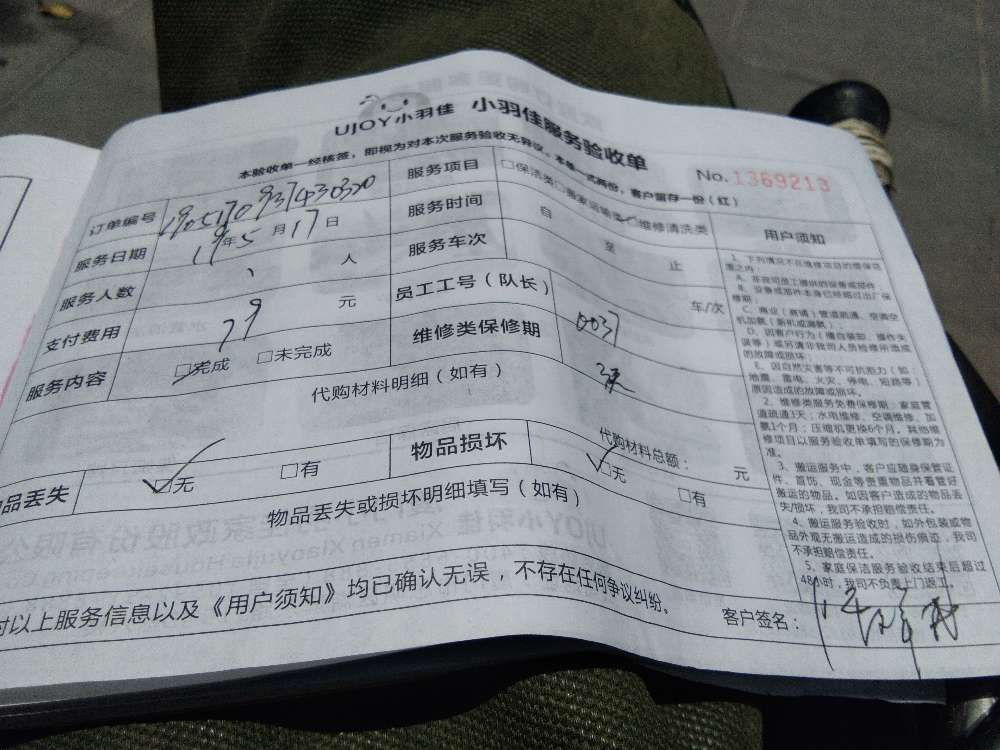 UJOY小羽佳 小羽佳服务验收单
本验收单一经核签，即视为对本次服务验收无异议。本单一式两份，客户留存一份（红）
No.1369213
订单编号 1905170937430320 服务项目 □保洁类□搬家运输类□维修清洗类
服务日期 19年5月17日 服务时间 自 至 止
服务人数 人 服务车次 车/次
支付费用 79 元 员工工号（队长） 0037
服务内容 □完成 □未完成 维修类保修期 3天
代购材料明细（如有）
代购材料总额： 元
物品丢失 □无 □有 物品损坏 □无 □有
物品丢失或损坏明细填写（如有）
对以上服务信息以及《用户须知》均已确认无误，不存在任何争议纠纷。
客户签名：
用户须知
1、下列情况不在维修项目的维保范
围之内
A、非我司员工提供的设备或部件
B、设备或部件本身已经超过出厂保
修期；
C、商业（商铺）管道疏通、空调空
机加氨（新机或漏氨）；
D、因客户行为（擅自装卸、操作失
误等）或另请非我司人员检修所造成
的故障或损坏；
E、因自然灾害等不可抗拒力（如：
地震、雷电、火灾、停电、短路等）
原因造成的故障或损坏。
2、维修类服务免费保修期：家庭管
道疏通3天；水电维修、空调维修、加
氨1个月；压缩机更换6个月。其他维
修项目以服务验收单填写的保修期为
准。
3、搬运服务中，客户应随身保管证
件、首饰、现金等贵重物品并看管好
搬运的物品。如因客户造成的物品丢
失/损坏，我司不承担赔偿责任。
4、搬运服务验收时，如外包装或物
品外观无搬运造成的损伤痕迹，我司
不承担赔偿责任。
5、家庭保洁服务验收结束后超过
48小时，我司不负责上门返工。